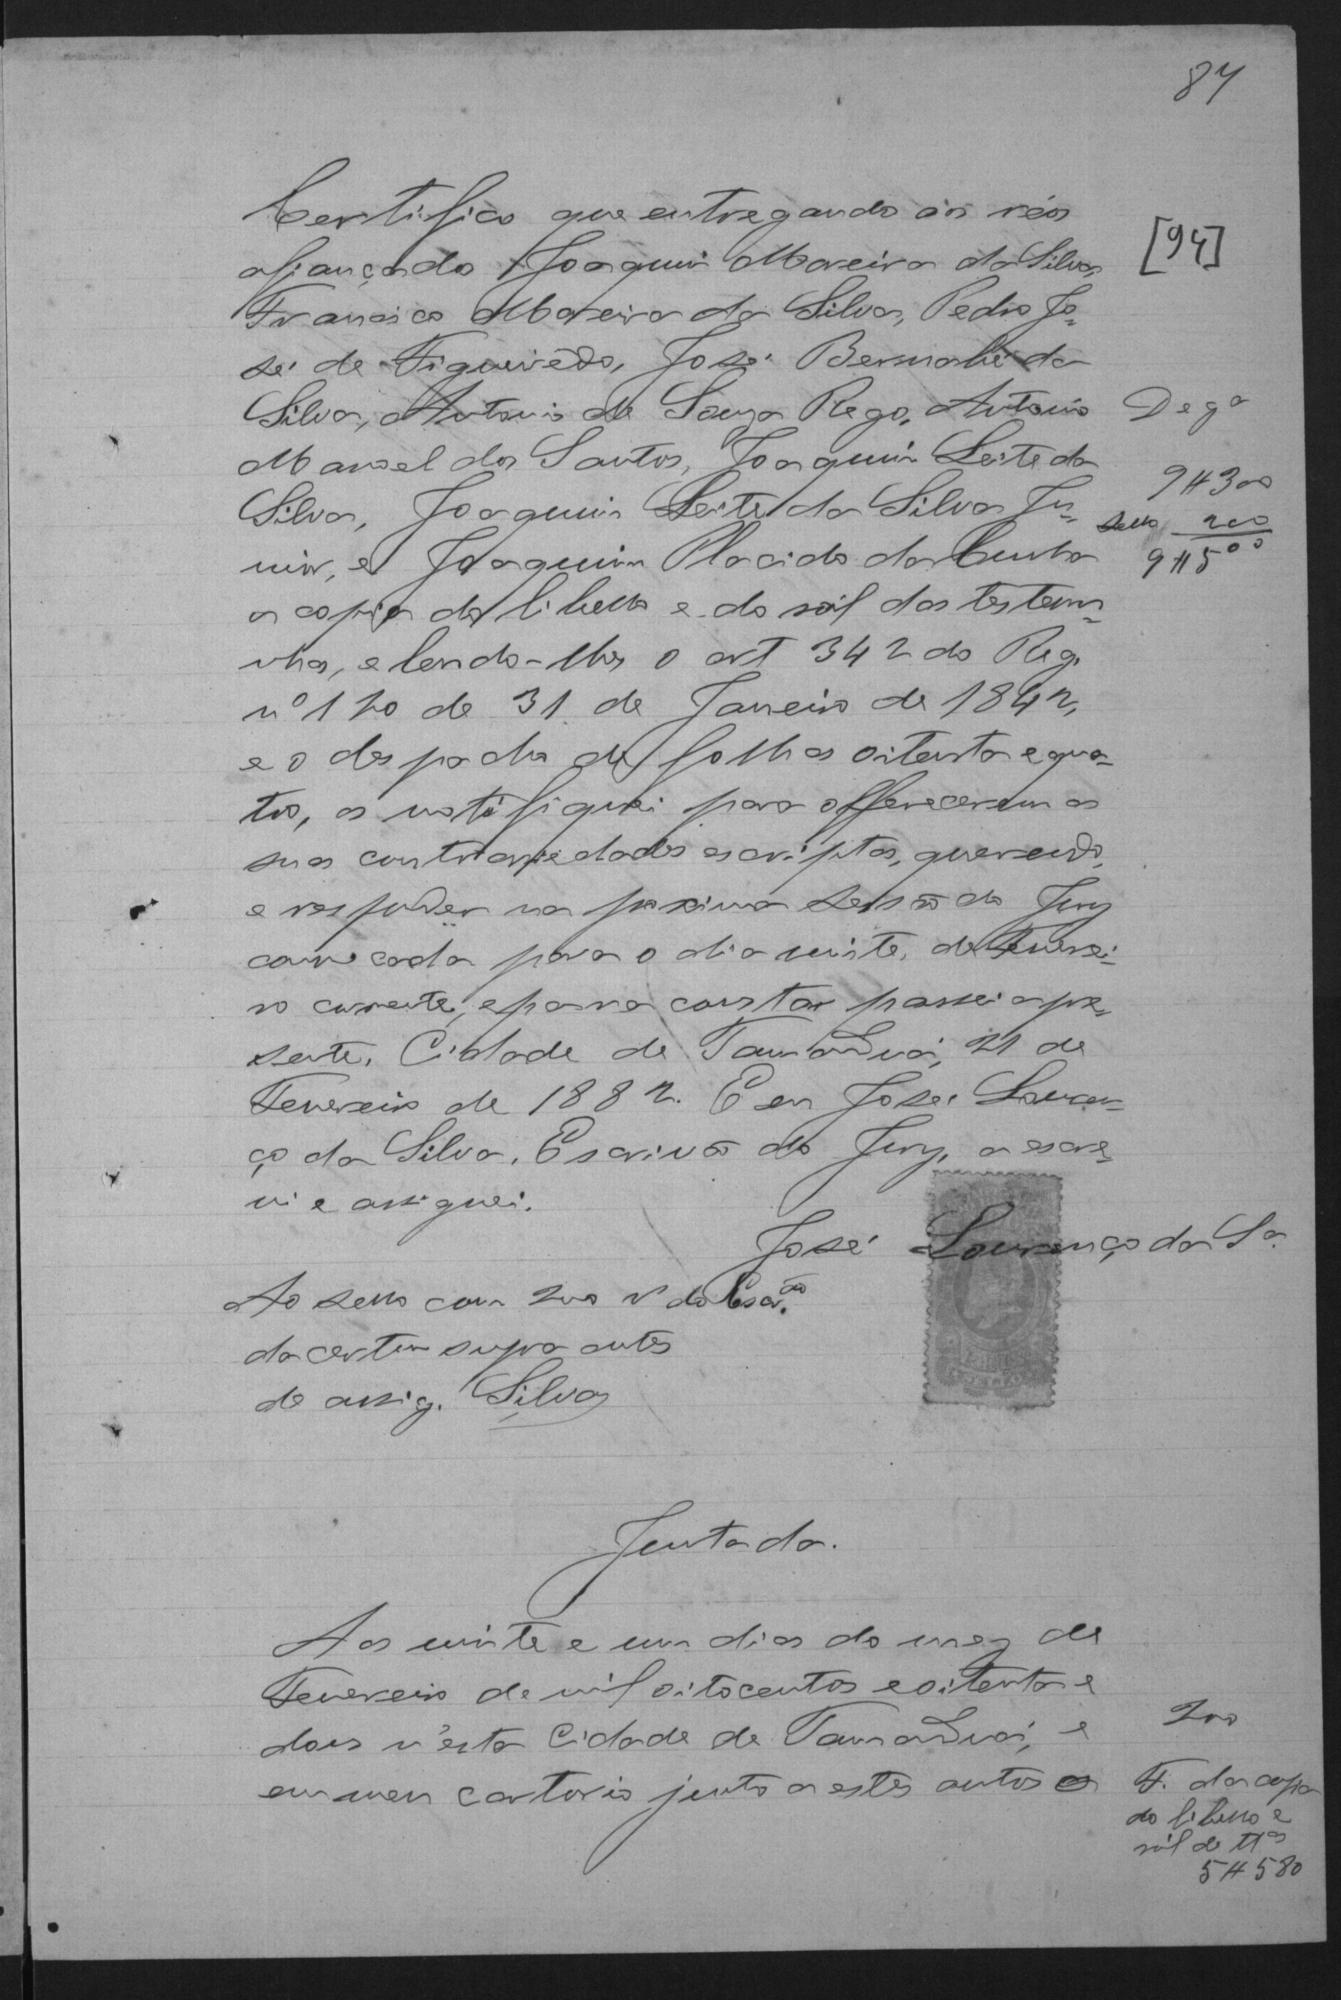 87
[94]
Certifico que entregando aos réos
afiançado Joaquim Moreira da Silva,
Francisco Moreira da Silva, Pedro Jo-
sé de Figueirêdo, José Bernabé da
Silva, Antonio de Souza Rego, Antonio
Manoel dos Santos, Joaquim Leite da
Silva, Joaquim Leite da Silva Ju-
nior, e Joaquim Placido da Cunha
a copia do libello e doról das testemu-
nhas, e lendo-lhes o art 342 do Reg.
nº 120 de 31 de Janeiro de 1842,
e o despacho de folhas oitenta e qua-
tro, os notifiquei para offerecerem as
suas contrariedades escriptas, querendo,
e responder na proxima sessão do Jury
convocada para o dia vinte, de Feverei-
ro corrente, e para constar passei a pre-
sente. Cidade de Tamanduá, 21 de
Fevereiro de 1882. E eu José Louren-
ço da Silva, Escrivão do Jury, a escre-
vi e assignei.
José Lourenço da Sª
Dega
9#300
sello 200
9#500
Ao sello com 200 rs da Escrão
da certam supra antes
de assig. Silva
Juntada.
Aos vinte e um dias do mez de
Fevereiro de mil oitocentos e oitenta e
dous n'esta Cidade de Tamanduá, e
em meu cartorio junto a estes autos a
200
F. da copia
do libello e
ról de ttas
5#580